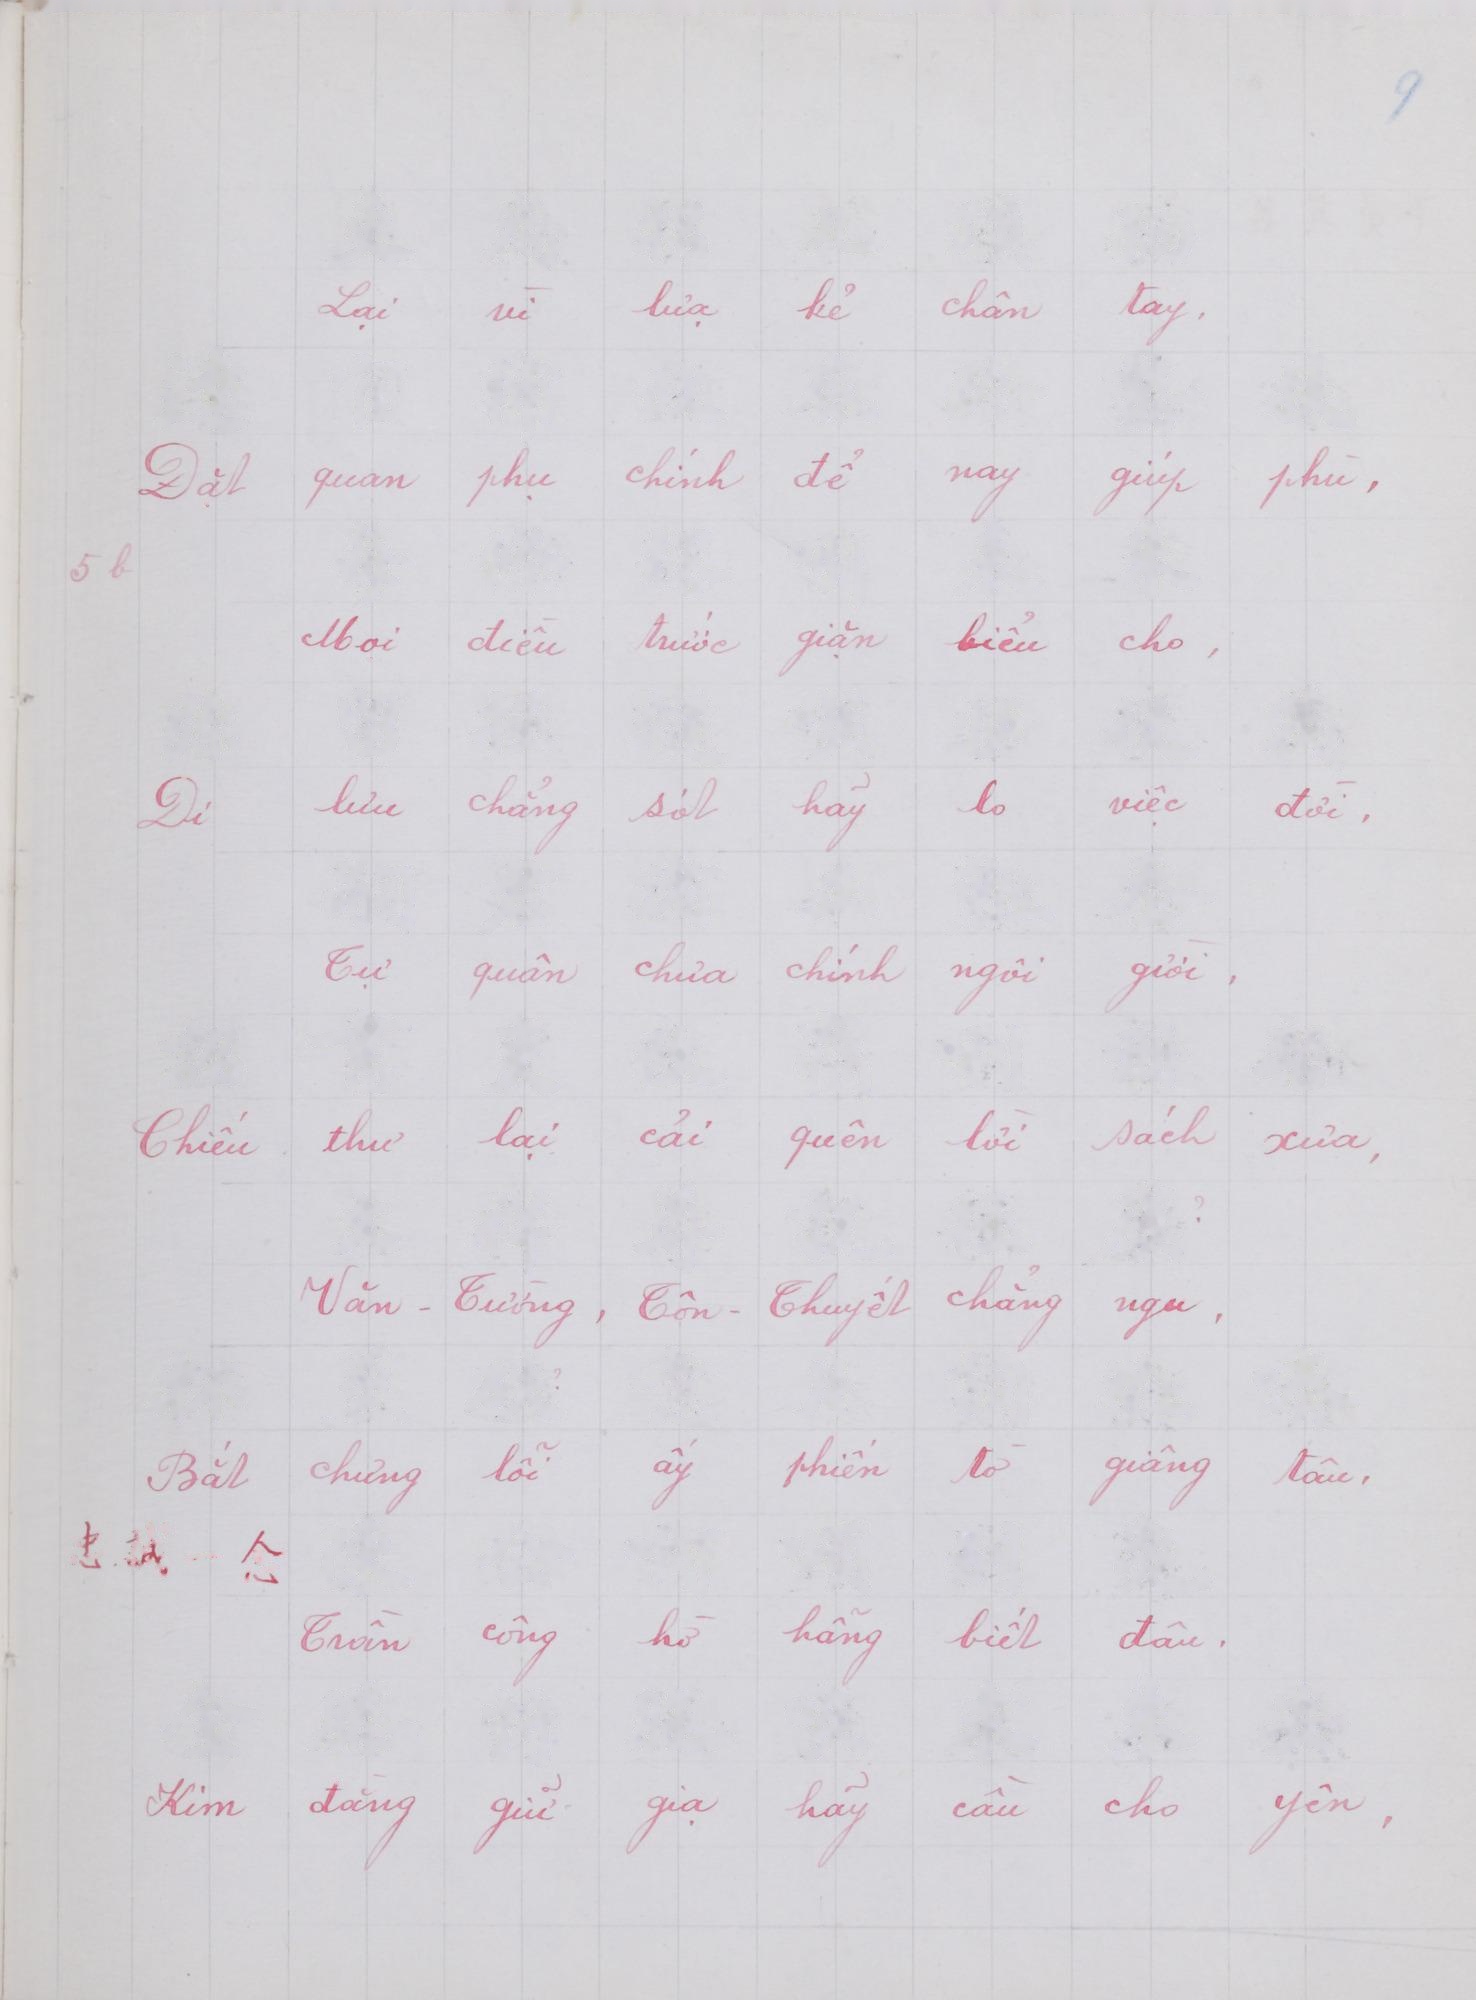 9
Lại vì lựa kẻ chân tay.
Đặt quan phụ chính để nay giúp phù,
5 b
Mọi điều trước giặn biểu cho,
Di lưu chẳng sót hãy lo việc đời,
Tự quân chưa chính ngôi giời,
Chiếu thư lại cải quên lời sách xưa,
?
Văn - Tường, Tôn - Thuyết chẳng ngu,
?
Bắt chưng lỗi ấy phiến tờ giâng tâu.
忠誠一念
Trần công hờ hẫng biết đâu.
Kim đằng giữ gịa hãy cầu cho yên,